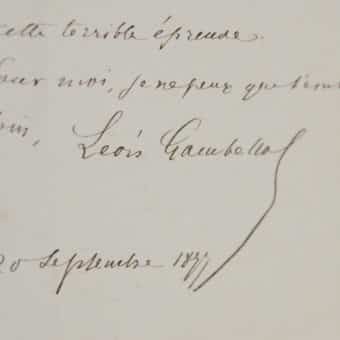 cette terrible épreuve.
Pour moi, je ne peux que
Léon Gambetta
20 Septembre 1877